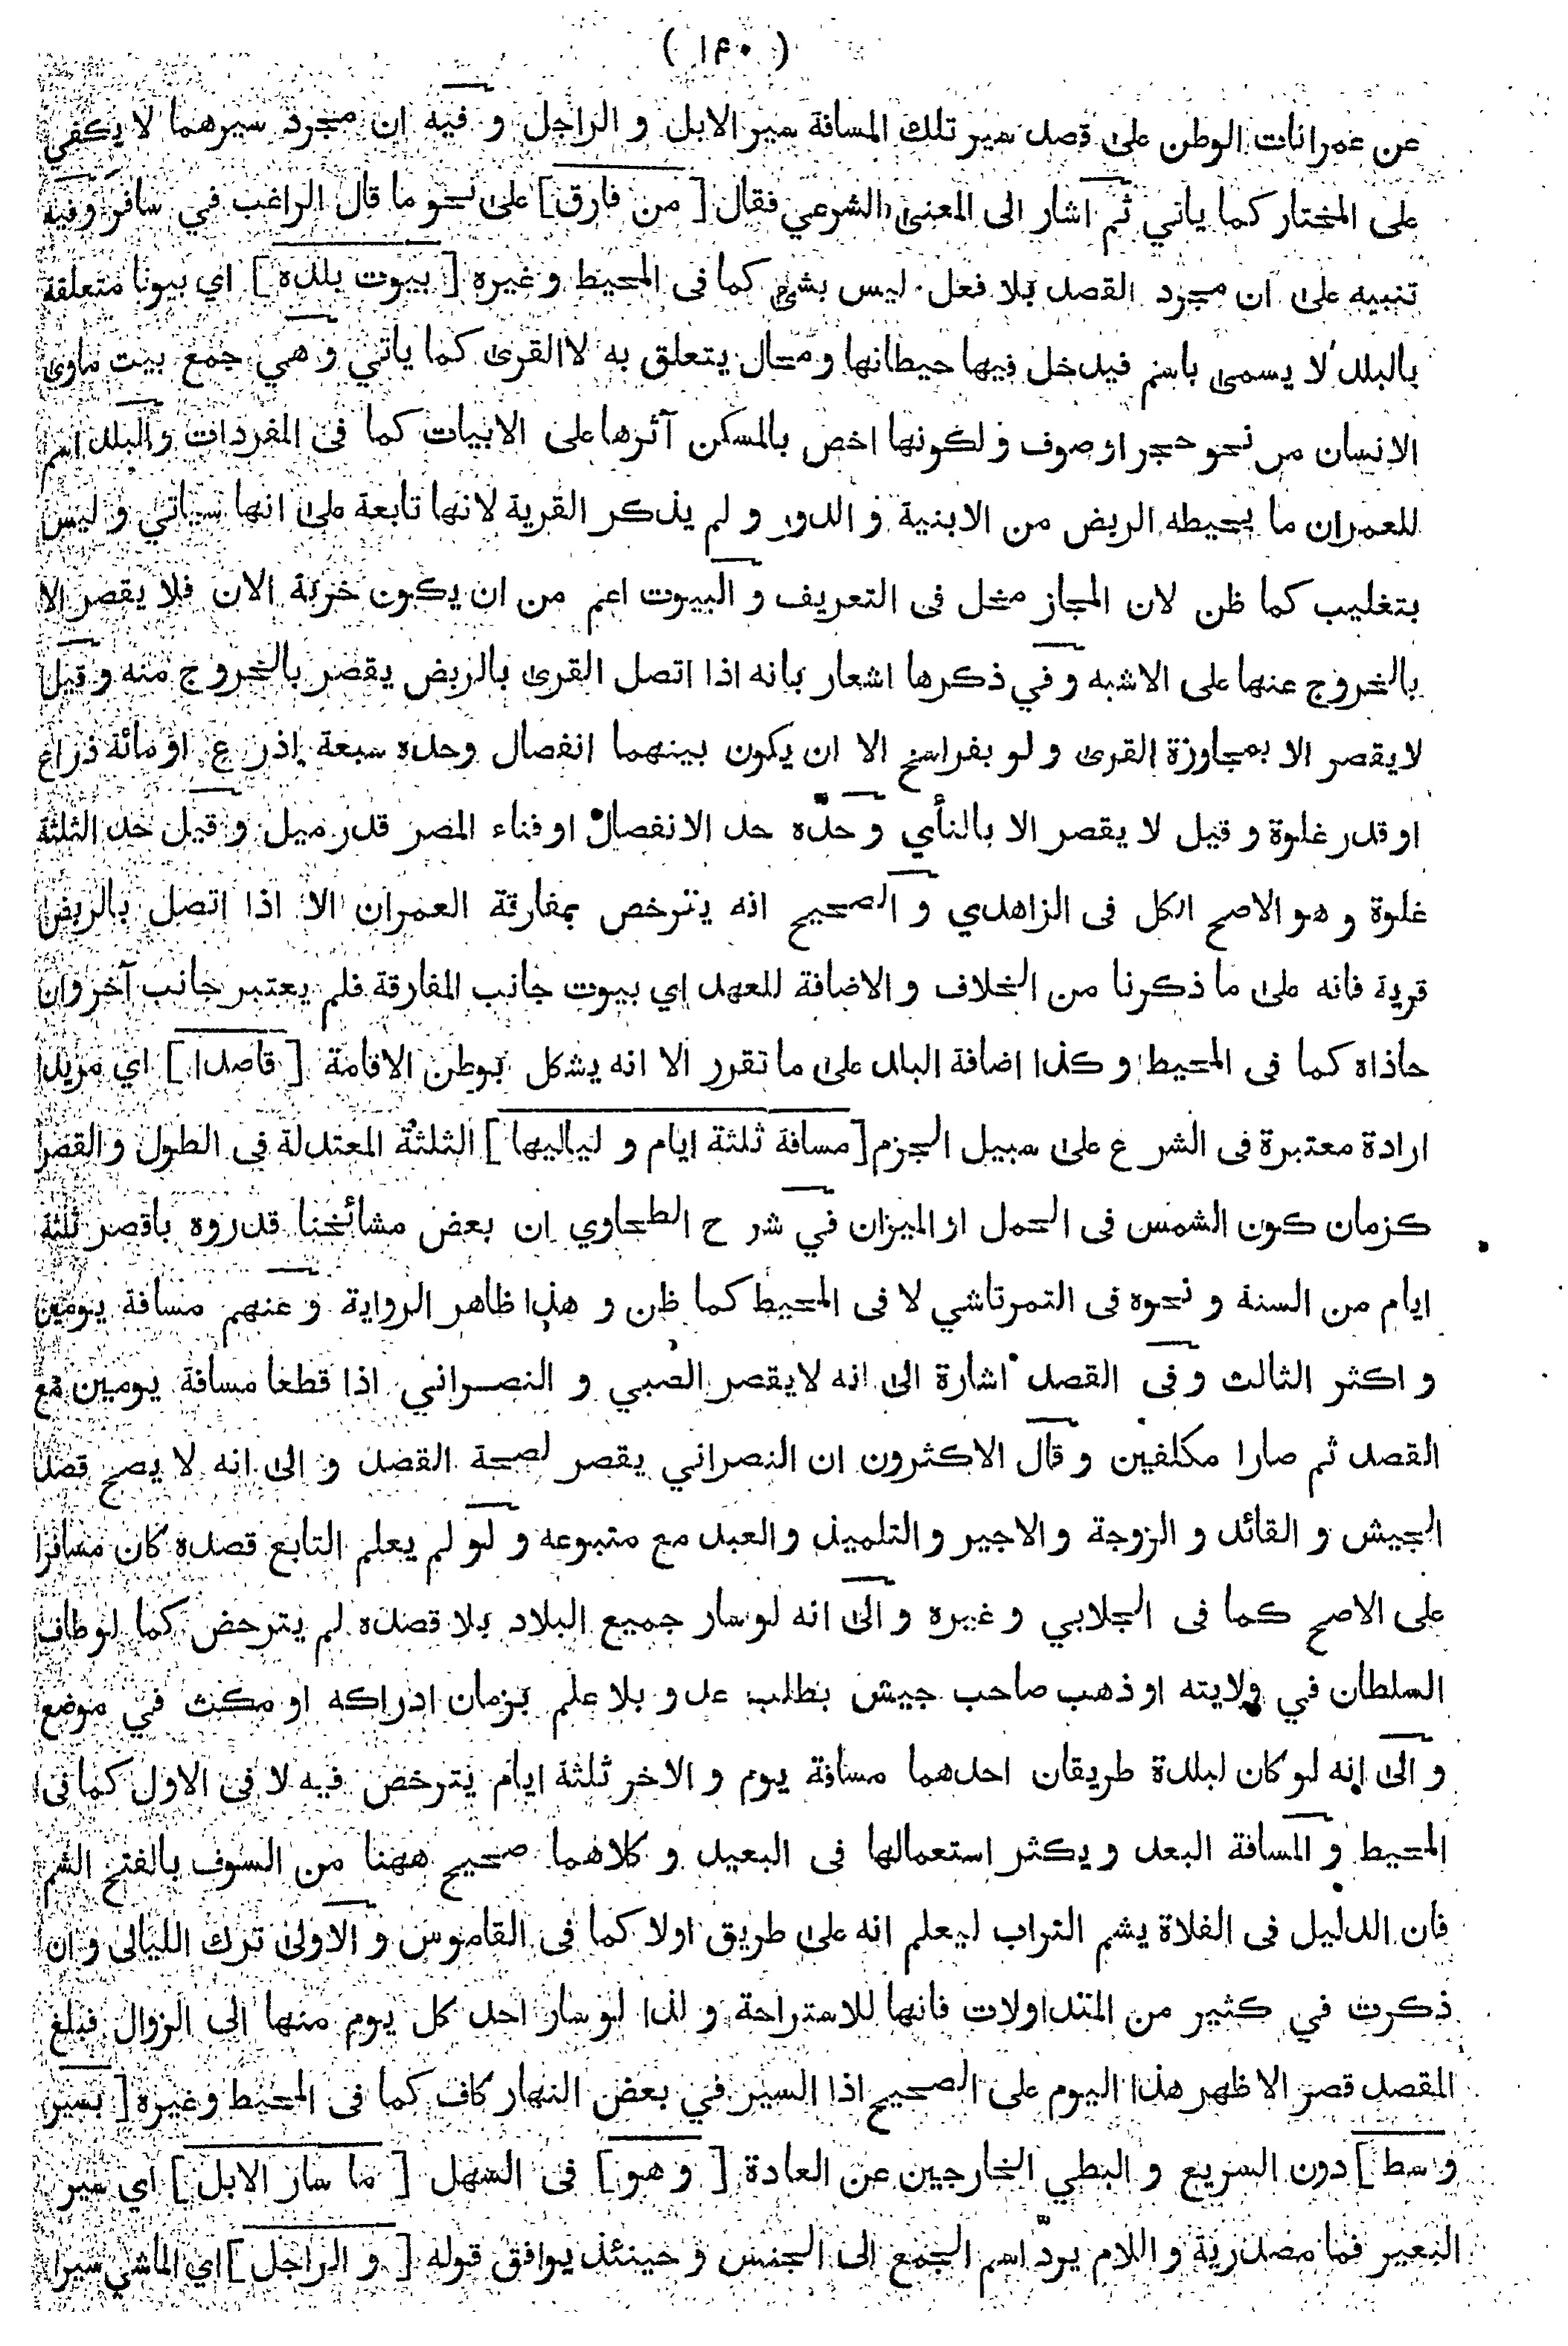 ( ۱۴۰ )
عن عمرانات الوطن على قصد سير تلك المسافة سير الابل و الراجل و فيه ان مجرد سيرهما لا يكفي
على المختار كما ياتي ثم اشار الى المعنى الشرعي فقال [ من فارق ] على نحو ما قال الراغب في سافر وفيه
تنبيه على ان مجرد القصد بلا فعل ليس بشئ كما فى المحيط و غيره [ بيوت بلده ] اي بيوتا متعلقة
بالبلد لا يسمى باسم فيدخل فيها حيطانها و محال يتعلق به لا القرى كما ياتي و هي جمع بيت ماوى
الانسان من نحو حجر او صوف و لكونها اخص بالمسكن آثرها على الابيات كما فى المفردات و البلد اسم
للعمران ما يحيطه الربض من الابنية و الدور و لم يذكر القرية لانها تابعة على انها سياتي و ليس
بتغليب كما ظن لان المجاز مخل فى التعريف و البيوت اعم من ان يكون خربة الان فلا يقصر الا
بالخروج عنها على الاشبه و في ذكرها اشعار بانه اذا اتصل القرى بالربض يقصر بالخروج منه و قيل
لا يقصر الا بمجاوزة القرى و لو بفراسخ الا ان يكون بينهما انفصال وحده سبعة اذرع او مائة ذراع
او قدر غلوة و قيل لا يقصر الا بالنأي و حدّه حد الانفصال او فناء المصر قدر ميل و قيل حد الثلثة
غلوة و هو الاصح الكل فى الزاهدي و الصحيح انه يترخص بمفارقة العمران الا اذا اتصل بالربض
قرية فانه على ما ذكرنا من الخلاف و الاضافة للعهد اي بيوت جانب المفارقة فلم يعتبر جانب آخر وان
حاذاه كما فى المحيط و كذا اضافة البلد على ما تقرر الا انه يشكل بوطن الاقامة [ قاصدا ] اي مريدا
ارادة معتبرة فى الشرع على سبيل الجزم [ مسافة ثلثة ايام و لياليها ] الثلثة المعتدلة فى الطول و القصر
كزمان كون الشمس فى الحمل او الميزان في شرح الطحاوي ان بعض مشائخنا قدروه باقصر ثلثة
ايام من السنة و نحوه فى التمرتاشي لا فى المحيط كما ظن و هذا ظاهر الرواية و عنهم مسافة يومين
و اكثر الثالث و فى القصد اشارة الى انه لا يقصر الصبي و النصراني اذا قطعا مسافة يومين مع
القصد ثم صارا مكلفين و قال الاكثرون ان النصراني يقصر لصحة القصد و الى انه لا يصح قصد
الجيش و القائد و الزوجة و الاجير و التلميذ و العبد مع متبوعه و لو لم يعلم التابع قصده كان مسافرا
على الاصح كما فى الجلابي و غيره و الى انه لو سار جميع البلاد بلا قصده لم يترخص كما لو طاف
السلطان في ولايته او ذهب صاحب جيش بطلب عدو بلا علم بزمان ادراكه او مكث في موضع
و الى انه لو كان لبلدة طريقان احدهما مسافة يوم و الاخر ثلثة ايام يترخص فيه لا فى الاول كما فى
المحيط و المسافة البعد و يكثر استعمالها فى البعيد و كلاهما صحيح ههنا من السوف بالفتح الشم
فان الدليل فى الفلاة يشم التراب ليعلم انه على طريق اولا كما فى القاموس و الاولى ترك الليالى و ان
ذكرت في كثير من المتداولات فانها للاستراحة و لذا لو سار احد كل يوم منها الى الزوال فبلغ
المقصد قصر الاظهر هذا اليوم على الصحيح اذا السير في بعض النهار كاف كما فى المحيط وغيره [ بسير
وسط ] دون السريع و البطي الخارجين عن العادة [ و هو ] فى السهل [ ما سار الابل ] اي سير
البعير فما مصدرية و اللام يردّ اسم الجمع الى الجنس و حينئذ يوافق قوله [ و الراجل ] اي الماشي سيرا